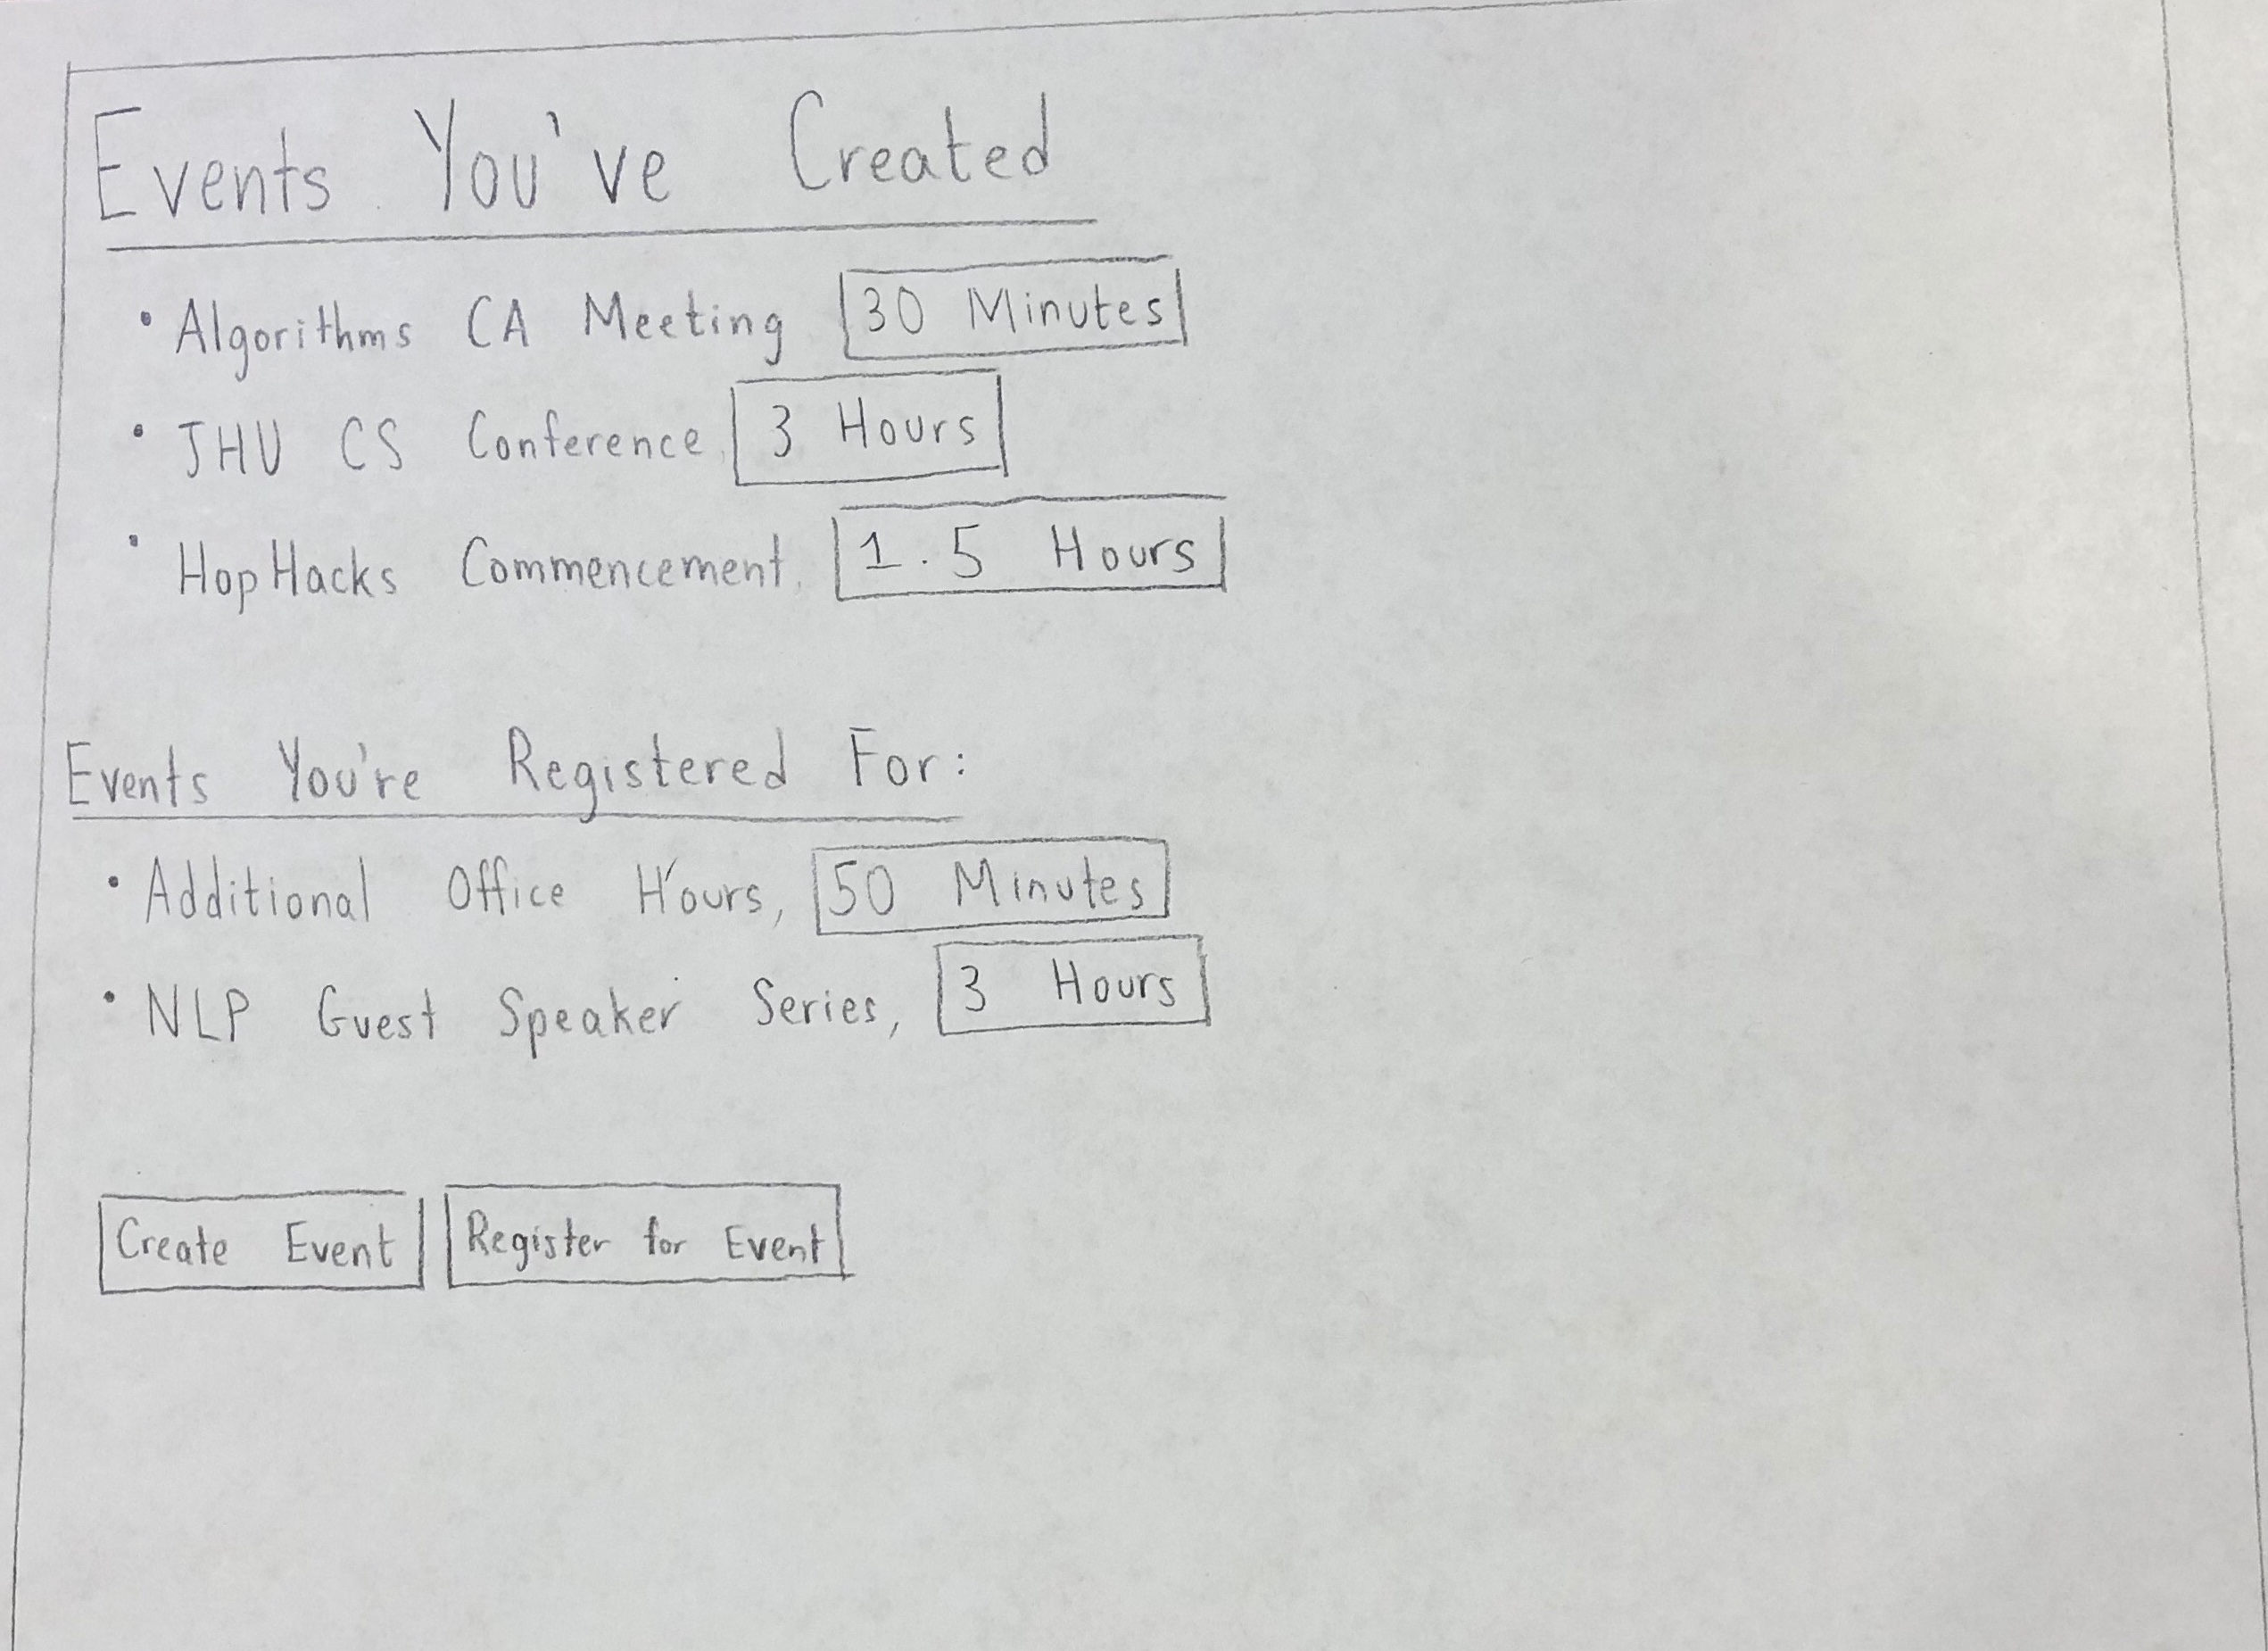 Events You've Created
Algorithms CA Meeting 30 Minutes
JHU CS Conference 3 Hours
HopHacks Commencement 1.5 Hours
Events You're Registered For:
Additional Office Hours, 50 Minutes
NLP Guest Speaker Series, 3 Hours
Create Event Register for Event